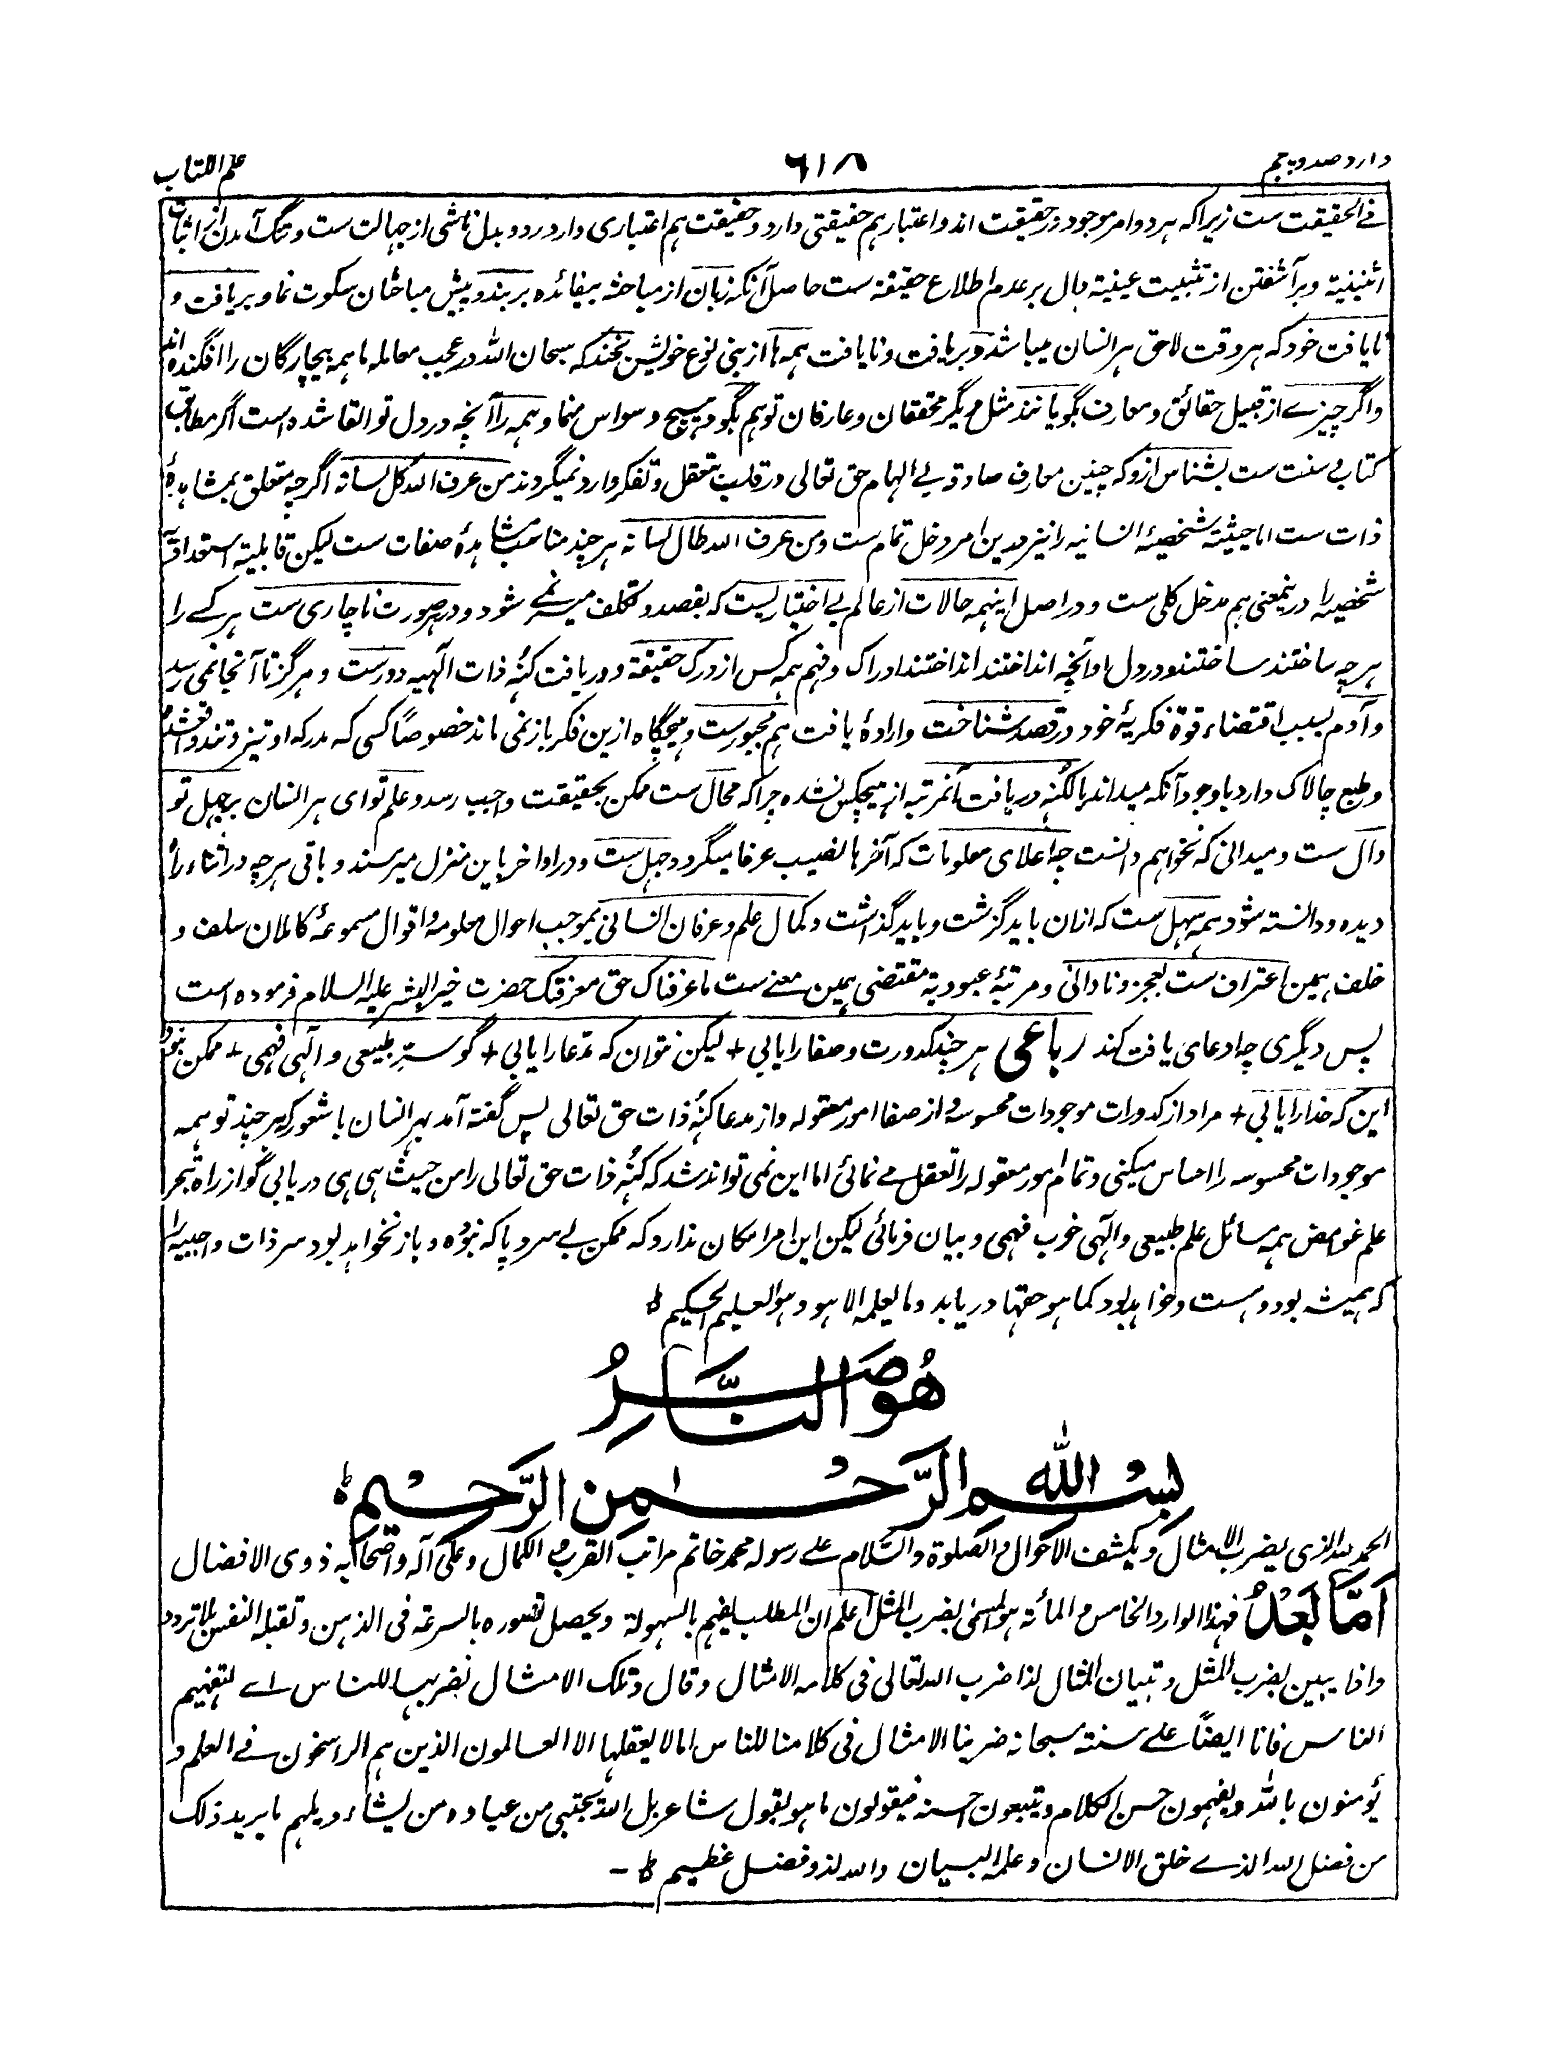 وارد صد و پنجم ٦١٨ علم الکتاب
فے الحقیقت ست زیرا کہ ہر دو امر موجود در حقیقت اند و اعتبار ہم حقیقتی دارد و حقیقت ہم اعتباری دارد رد و بدل ناشی از جہالت ست و تنگ آمدن از اثبات
اثنینیة و بر آشفتن از تثبیت عینیة دال بر عدم اطلاع حقیقة ست حاصل آنکہ زبان از مباحثہ بیفائدہ بربند و پیش مباحثان سکوت نما و بر یافت و
نا یافت خود کہ ہر وقت لاحق ہر انسان میباشد و بر یافت و نا یافت ہمہ ہا از بنی نوع خویش بخند کہ سبحان اللہ در عجب معاملہ ما ہمہ بیچارگان را افگندہ اند
و اگر چیزے از قبیل حقائق و معارف بگویانند مثل دیگر محققان و عارفان تو ہم بگو و ہیچ وسواس منما و ہمہ را آنچہ در دل تو القا شدہ است اگر مطابق
کتاب و سنت ست بشناس ازو کہ چنین معارف صادقہ بے الہام حق تعالی در قلب متعقل و تفکر وارد نمیگردند من عرف اللہ کل لسانہ اگرچہ متعلق بمشاہدۂ
ذات ست اما حیثیة شخصیۂ انسانیہ را نیز درین امر دخل تمام ست و من عرف اللہ طال لسانہ ہر چند مناسب مشاہدۂ صفات ست لیکن قابلیة استعداد
شخصیہ را درینمعنی ہم مدخل کلی ست و در اصل اینہمہ حالات از عالم بے اختیاریست کہ بقصد و تکلف میسر نمے شود و در ہر صورت ناچاری ست ہر کسے را
ہر چہ ساختند ساختند و در دل او آنچہ انداختند انداختند ادراک و فہم ہمہ کس از درک حقیقة و دریافت کنہ ذات الٰہیہ دورست و ہرگز تا آنجا نمی رسد
و آدم بسبب اقتضاء قوة فکریۂ خود در قصد شناخت و ارادۂ یافت ہم مجبورست و ہیچگاہ ازین فکر باز نمی ماند خصوصاً کسی کہ مدرکہ او تیز و تند
و طبع چالاک دارد باوجود آنکہ میداند بالکنہ دریافت آنمرتبہ از ہیچکس نشدہ چرا کہ محال ست ممکن بحقیقت واجب رسد و علم تو ای ہر انسان بر جہل تو
دال ست و میدانی کہ نخواہم دانست چہ اعلای معلومات کہ آخرہا نصیب عرفا میگردد جہل ست و در اواخر باین منزل میرسند و باقی ہر چہ در اثناء راہ
دیدہ و دانستہ شود ہمہ سہل ست کہ ازان باید گزشت و باید گذاشت و کمال علم و عرفان انسانی بموجب احوال معلومہ و اقوال مسموعۂ کاملان سلف و
خلف ہمین اعتراف ست بعجز و نادانی و مرتبۂ عبودیة مقتضی ہمین معنے ست ما عرفناک حق معرفتک حضرت خیر البشر علیہ السلام فرمودہ است
پس دیگری چہ ادعای یافت کند رباعی ہر چند کدورت و صفا را یابی + لیکن نتوان کہ مدعا را یابی + گو ستر طبیعی و الٰہی فہمی + ممکن نبود
این کہ خدا را یابی + مراد از کدورات موجودات محسوسہ و از صفا امور معقولہ و از مدعا کنہ ذات حق تعالی پس گفتہ آمد بہر انسان باشعور کہ ہر چند تو ہمہ
موجودات محسوسہ را احساس میکنی و تمام امور معقولہ را تعقل مے نمائی اما این نمی تواند شد کہ کنہ ذات حق تعالی را من حیث ہی ہی دریابی گو از راہ تبحر
علم غوامض ہمہ مسائل علم طبیعی و الٰہی خوب فہمی و بیان فرمائی لیکن این امر امکان ندارد کہ ممکن بے سر و پا کہ نبودہ و باز نخواہد بود سر ذات واجبیہ را
کہ ہمیشہ بود و ہست و خواہد بود کما ہو حقہا دریابد و ما یعلمہ الا ہو و ہو العلیم الحکیم ط
هُوَ النَّاصِرُ
بِسْمِ اللهِ الرَّحْمٰنِ الرَّحِيْمِ ط
الحمد للہ الذی یضرب الامثال و یکشف الاحوال و الصلوة و السلام علے رسولہ محمد خاتم مراتب القرب و الکمال و علی آلہ و اصحابہ ذوی الافضال
اَمَّا بَعْدُ فہذا الوارد الخامس و المائة ہو المسمی بضرب المثل اعلم ان المطلب یفہم بالسہولة و یحصل تصورہ بالسرعة فی الذہن و تقبلہ النفس بلا تردد
و اذا یبین بضرب المثل و تبیان المثال لذا ضرب اللہ تعالی فی کلامہ الامثال و قال و تلک الامثال نضربہا للناس اے لتفہیم
الناس فانا ایضاً علے سنتہ سبحانہ ضربنا الامثال فی کلامنا للناس اما لا یعقلہا الا العالمون الذین ہم الراسخون فے العلم و
یؤمنون باللہ و یفہمون حسن الکلام و یتبعون احسنہ فیقولون ما ہو بقول شاعر بل اللہ یجتبی من عبادہ من یشاء و یلہم ما یرید ذلک
من فضل اللہ الذے خلق الانسان و علمہ البیان واللہ لذو فضل عظیم ط -